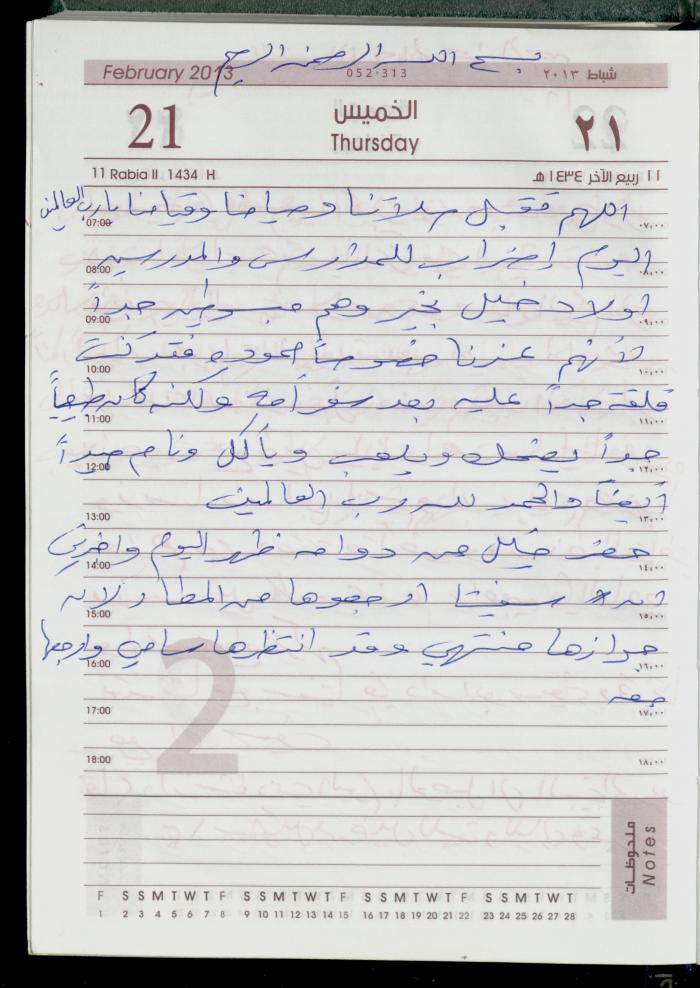 بسم الله الرحمن الرحيم
February 2013 052-313 شباط ٢٠١٣
21 الخميس ٢١
Thursday
11 Rabia II 1434 H ١١ ربيع الآخر ١٤٣٤ هـ
اللهم تقبل صلاتنا وصيامنا وقيامنا يا رب العالمين
07:00 ٠٧,٠٠
اليوم إضراب للمدارس والمدرسين
08:00 ٠٨,٠٠
اولاد خليل بخير وهم مبسوطين جداً
09:00 ٠٩,٠٠
لأنهم عندنا خصوصاً حموده فقد كنت
10:00 ١٠,٠٠
قلقة جداً عليه بعد سفر أمه ولكنه كان طبيعياً
11:00 ١١,٠٠
جداً يضحك ويلعب ويأكل ونام جيداً
12:00 ١٢,٠٠
أيضاً والحمد لله رب العالمين
13:00 ١٣,٠٠
حضر خليل من دوامه ظهر اليوم واخبرني
14:00 ١٤,٠٠
ان ارجعوها من المطار لان
15:00 ١٥,٠٠
جوازها منتهي وقد انتظرها سامي وارجعها
16:00 ١٦,٠٠
معه
17:00 ١٧,٠٠
18:00 ١٨,٠٠
2
ملحوظات
Notes
F S S M T W T F S S M T W T F S S M T W T F S S M T W T
1 2 3 4 5 6 7 8 9 10 11 12 13 14 15 16 17 18 19 20 21 22 23 24 25 26 27 28